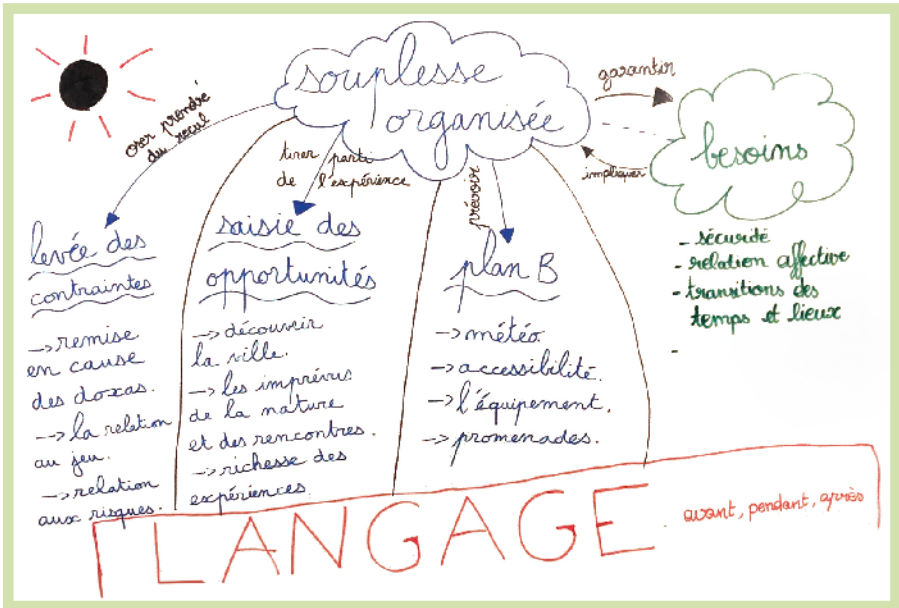 souplesse
organisée
garantir
besoins
impliquer
- sécurité
- relation affective
- transitions des
temps et lieux
-
oser prendre
du recul
levée des
contraintes
-> remise
en cause
des doxas.
-> la reletion
au jeu.
-> relation
aux risques.
tirer parti
de l'expérience
saisie des
opportunités
-> découvrir
la ville.
-> les imprévus
de la nature
et des rencontres.
-> richesse des
expériences.
prévoir
plan B
-> météo.
-> accessibilité.
-> l'équipement.
-> promenades.
LANGAGE
avant, pendant, après